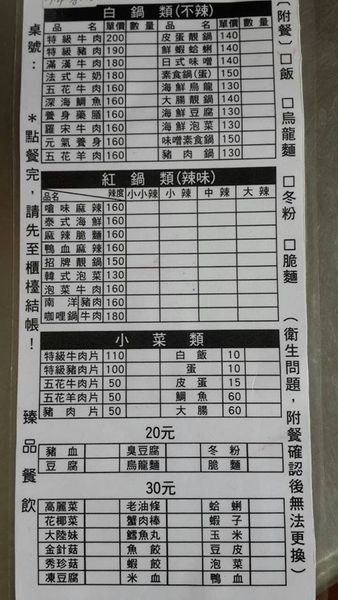 白鍋類(不辣)
品名 單價 數量 品名 單價 數量
特級牛肉 200 皮蛋靚鍋 140
特級豬肉 190 鮮蝦蛤蜊 140
滿漢牛肉 180 日式味噌 140
法式牛奶 180 素食鍋(蛋) 150
五花牛肉 160 海鮮烏龍 130
深海鯛魚 160 大腸靚鍋 130
養身藥膳 160 海鮮豆腐 130
羅宋牛肉 160 海鮮泡菜 130
元氣養身 160 味噌素食鍋 150
五花羊肉 160 豬肉鍋 130
紅鍋類(辣味)
品名 辣度 小小辣 小辣 中辣 大辣
嗆味麻辣 160
泰式海鮮 160
麻辣脆麵 160
鴨血麻辣 160
招牌靚鍋 150
韓式泡菜 130
泡菜牛肉 160
南洋豬肉 160
咖哩鍋牛肉 180
小菜類
特級牛肉片 110 白飯 10
特級豬肉片 100 蛋 10
五花牛肉片 50 皮蛋 15
五花羊肉片 50 鯛魚 60
豬肉片 50 大腸 60
20元
豬血 臭豆腐 冬粉
豆腐 烏龍麵 脆麵
30元
高麗菜 老油條 蛤蜊
花椰菜 蟹肉棒 蝦子
大陸妹 鱈魚丸 玉米
金針菇 魚餃 豆皮
秀珍菇 蝦餃 泡菜
凍豆腐 米血 鴨血
桌號: *點餐完,請先至櫃檯結帳! 臻品餐飲
(附餐)□飯 □烏龍麵 □冬粉 □脆麵 (衛生問題,附餐確認後無法更換)